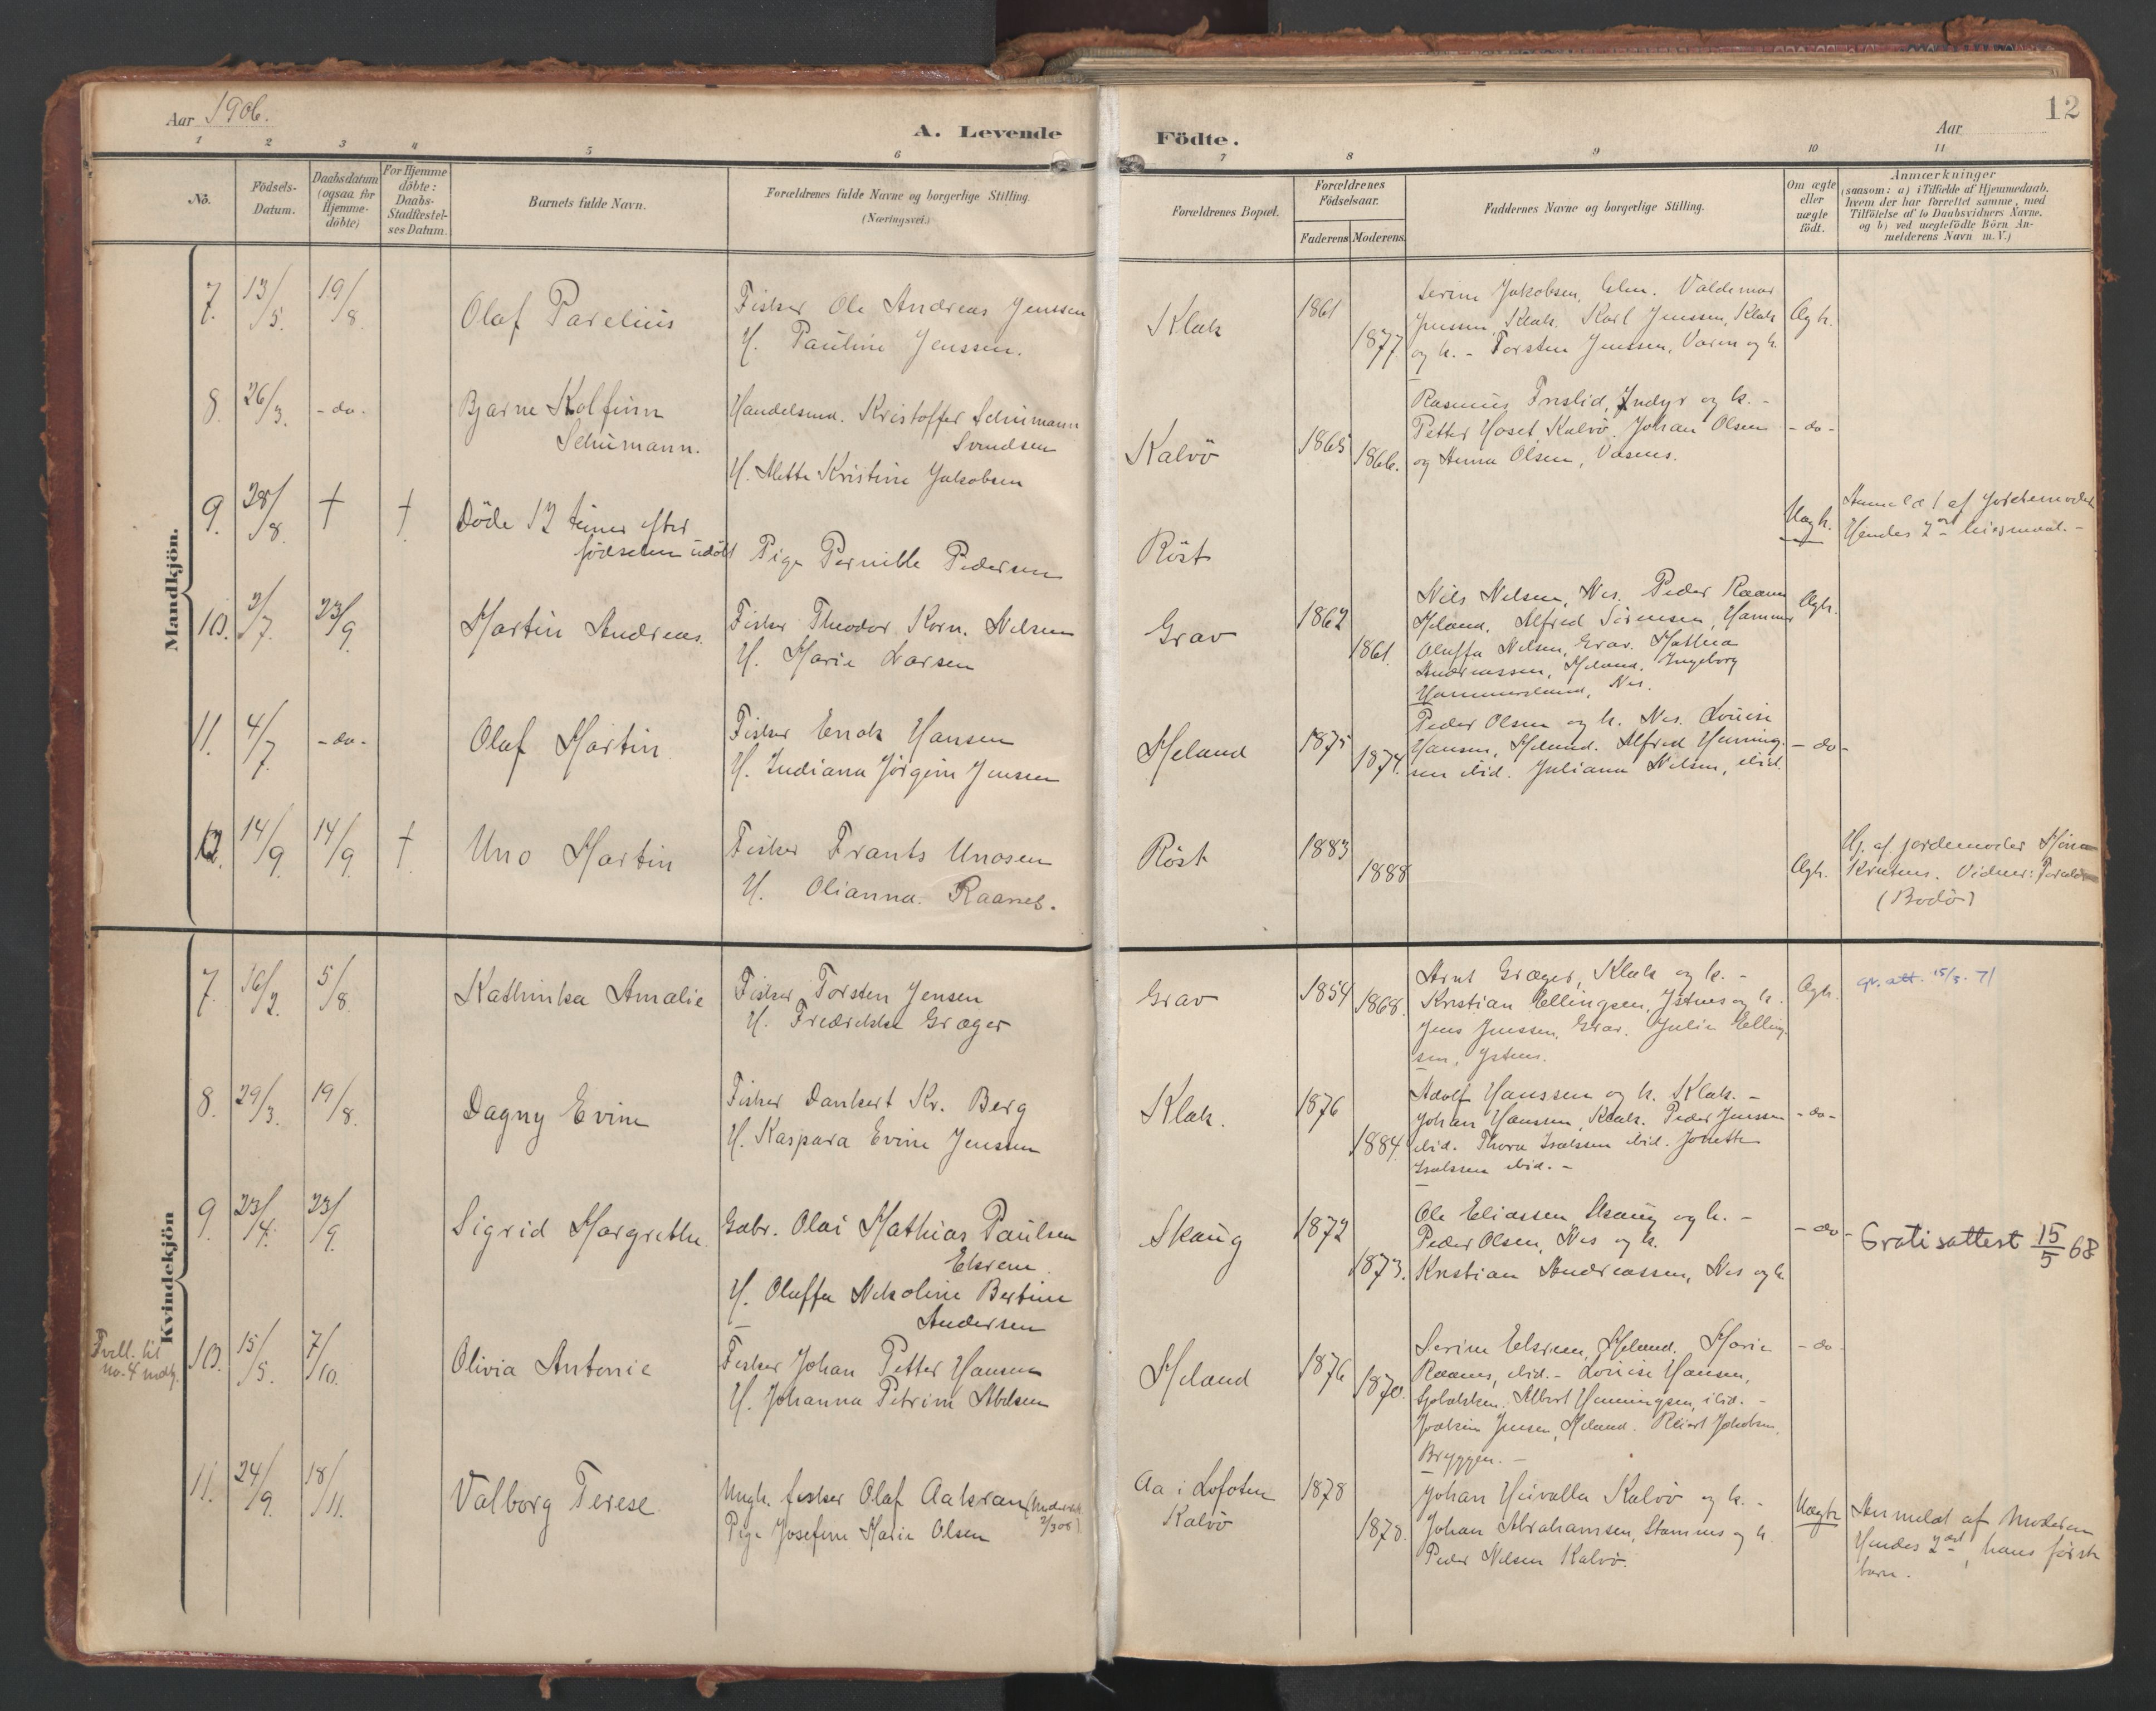 Aar 1906.
A. Levende
Födte.
Aar
12
1 2 3 4 5 6 7 8 9 10 11
No.
Födsels-
Datum.
Daabsdatum
(ogsaa for
Hjemme-
döbte)
For Hjemme
döbte:
Daabs-
Stadfæstel-
ses Datum.
Barnets fulde Navn.
Forældrenes fulde Navne og borgerlige Stilling.
(Næringsvei.)
Forældrenes Bopæl.
Forældrenes
Födselsaar.
Faderens Moderens
Faddernes Navne og borgerlige Stilling.
Om ægte
eller
uægte
födt.
Anmærkninger
(saasom: a) i Tilfælde af Hjemmedaab.
hvem der har forrettet samme, med
Tilföielse af to Daabsvidners Navne.
og b) ved uægtefödte Börn An-
melderens Navn m. V.)
Mandkjön.
7. 13/5. 19/8.
Olaf Parelius
Fisker Ole Andreas Jenssen
H. Pauline Jenssen.
Klak
1861
1877
Serine Jakobsen, Valdemar
Jenssen, Klak. Karl Jenssen, Klak
og h. - Torsten Jenssen, og h.
Ægh.
8. 26/3. -do-
Bjarne Kolfinn
Schumann.
Handelsmd. Kristoffer Schumann
Svendsen
H. Mette Kristine Jakobsen
Kalvö
1865
1866.
Rasmus Indyr og h. -
Petter Hoset, Kalvö. Johan Olsen
og Anna Olsen,
-do-
9. 28/8. † †
Döde 12 timer efter
födselen udöbt
Pige Pernille Pedersen
Röst
Uægh.
Anmeldt af jordemoder
Hendes 2det leiermaal. -
10. 2/7. 23/9.
Martin Andreas.
Fisker Theodor Korn. Nelsen
H. Marie Larsen
Grav
1862
1861.
Nils Nelsen, Nes. Peder Raanes
Meland. Alfred Sörensen, Hammer
Oluffa Nelsen, Grav. Mathea
Andreassen, Meland. Ingeborg
Hammersland, Nes.
Ægh.
11. 4/7. -do-
Olaf Martin
Fisker Enok Hansen
H. Indiana Jörgine Jensen
Meland
1875
1874.
Peder Olsen og h. Nes. Lovise
Hansen, Meland. Alfred Henning-
sen ibid. Juliana Nelsen, ibid.
-do-
12. 14/9. 14/9. †
Uno Martin
Fisker Frants Unosen
H. Olianna Raanes.
Röst
1883
1888
Ægh.
Hj. af jordemoder
Vidner: Foreldre
(Bodö)
Kvindekjön
7. 16/2. 5/8.
Kathinka Amalie
Fisker Torsten Jensen
H. Fredrikke Græger
Grav
1854
1868.
Arnt Græger, Klak og h. -
Kristian Ellingsen, Ystnes og h.
Jens Jenssen, Grav. Julie Elling-
sen, Ystnes.
Ægh.
gr. att. 15/5. 71
8. 29/3. 19/8.
Dagny Evine
Fisker Dankert Kr. Berg
H. Kaspara Evine Jenssen
Klak.
1876
1884.
Adolf Hanssen og h. Klak. -
Johan Hansen, Klak. Peder Jenssen
ibid. Thora Isaksen ibid. Jonette
Isaksen ibid. -
-do-
9. 23/4. 23/9.
Sigrid Margrethe
Gabr. Olai Mathias Paulsen
Ekrem.
H. Oluffa Nikoline Bertine
Andersen
Skaug
1872
1873.
Ole Eliassen Skaug og h. -
Peder Olsen, Nes og h.
Kristian Andreassen, Nes og h.
-do-
Gratisattest 15/5 68
Tvill. til
no. 4 mdkj.
10. 15/5. 7/10.
Olivia Antonie
Fisker Johan Petter Hansen
H. Johanna Petrine Abelsen
Meland
1876
1870.
Serine Ekrem, Meland. Marie
Raanes, ibid. - Lovise Hansen,
Albert Henningsen, ibid. -
Joakim Jensen, Meland. Jakobsen,
Bryggen. -
-do-
11. 24/9. 18/11.
Valborg Terese
Ungk. fisker Olaf Aakran
Pige Josefine Marie Olsen
Aa i Lofoten
Kalvö
1878
1878.
Johan Kalvö og h. -
Johan Abrahamsen, Stamnes og h.
Peder Nelsen Kalvö.
Uægte
Anmeldt af Moderen
Hendes 2det, hans förste
barn.